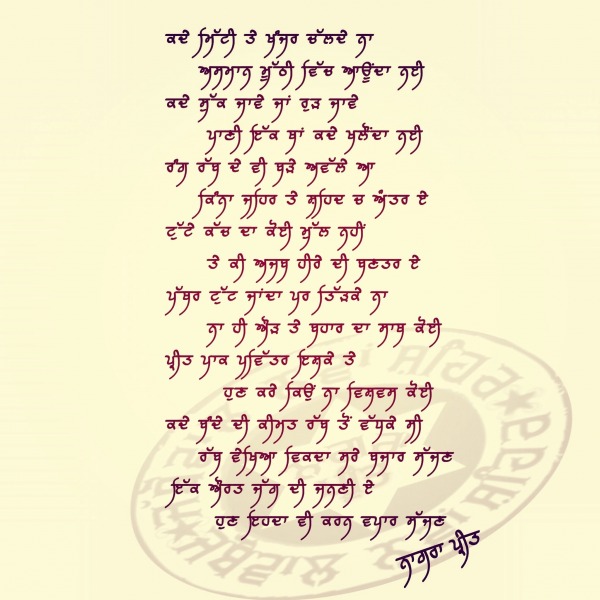 ਕਦੇ ਮਿੱਟੀ ਤੇ ਖੰਜਰ ਚੱਲਦੇ ਨਾ
ਅਸਮਾਨ ਮੁੱਠੀ ਵਿੱਚ ਆਉਂਦਾ ਨਈ
ਕਦੇ ਸੁੱਕ ਜਾਵੇ ਜਾਂ ਰੁੜ ਜਾਵੇ
ਪਾਣੀ ਇੱਕ ਥਾਂ ਕਦੇ ਖਲੌਂਦਾ ਨਈ
ਰੰਗ ਰੱਬ ਦੇ ਵੀ ਬੜੇ ਅਵੱਲੇ ਆ
ਕਿੰਨਾ ਜਹਿਰ ਤੇ ਸ਼ਹਿਦ ਚ ਅੰਤਰ ਏ
ਟੁੱਟੇ ਕੱਚ ਦਾ ਕੋਈ ਮੁੱਲ ਨਹੀਂ
ਤੇ ਕੀ ਅਜਬ ਹੀਰੇ ਦੀ ਬਣਤਰ ਏ
ਪੱਥਰ ਟੁੱਟ ਜਾਂਦਾ ਪਰ ਤਿੱੜਕੇ ਨਾ
ਨਾ ਹੀ ਔੜ ਤੇ ਬਹਾਰ ਦਾ ਸਾਥ ਕੋਈ
ਪ੍ਰੀਤ ਪਾਕ ਪਵਿੱਤਰ ਇਸ਼ਕੇ ਤੇ
ਹੁਣ ਕਰੇ ਕਿਉਂ ਨਾ ਵਿਸ਼ਵਸ ਕੋਈ
ਕਦੇ ਬੰਦੇ ਦੀ ਕੀਮਤ ਰੱਬ ਤੋਂ ਵੱਧਕੇ ਸੀ
ਰੱਬ ਵੇਖਿਆ ਵਿਕਦਾ ਸਰੇ ਬਜਾਰ ਸੱਜਣ
ਇੱਕ ਔਰਤ ਜੱਗ ਦੀ ਜਨਣੀ ਏ
ਹੁਣ ਇਹਦਾ ਵੀ ਕਰਨ ਵਪਾਰ ਸੱਜਣ
ਨਾਗਰਾ ਪ੍ਰੀਤ